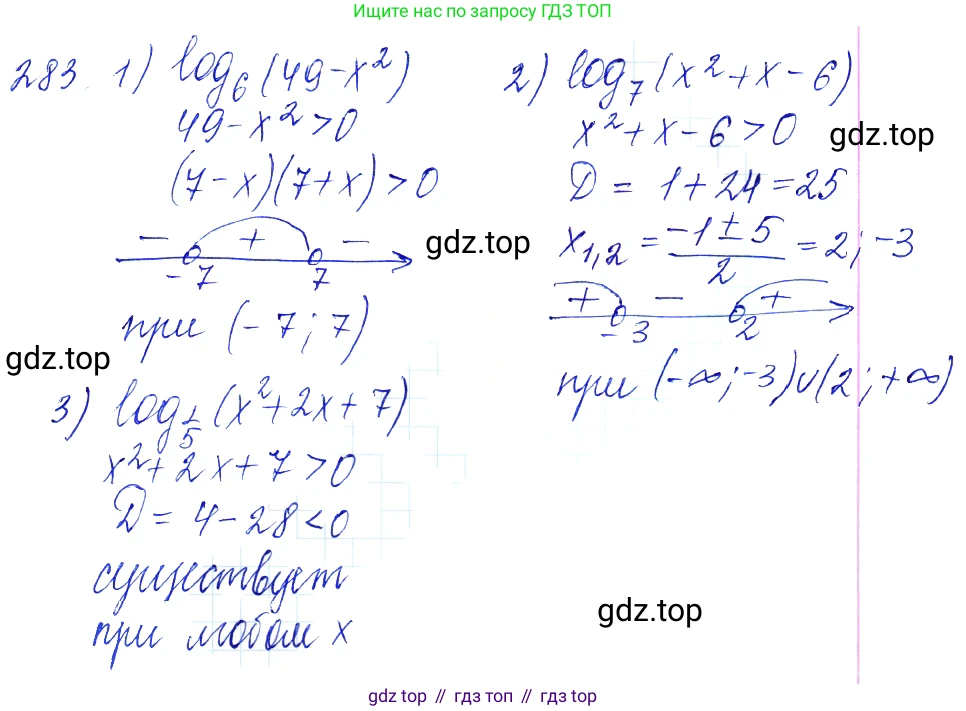 Ищите нас по запросу ГДЗ ТОП
283. 1) log₆(49-x²)
49-x²>0
(7-x)(7+x)>0
- + -
-7 7
при (-7; 7)
2) log₇(x²+x-6)
x²+x-6>0
gdz.top
D = 1+24=25
x₁,₂ = (-1±5)/2 = 2; -3
gdz.top
+ - +
-3 2
при (-∞; -3)∪(2; +∞)
gdz.top
3) log_{1/5}(x²+2x+7)
x²+2x+7>0
D = 4-28<0
существует
при любом x
gdz.top
gdz top // гдз топ // gdz top